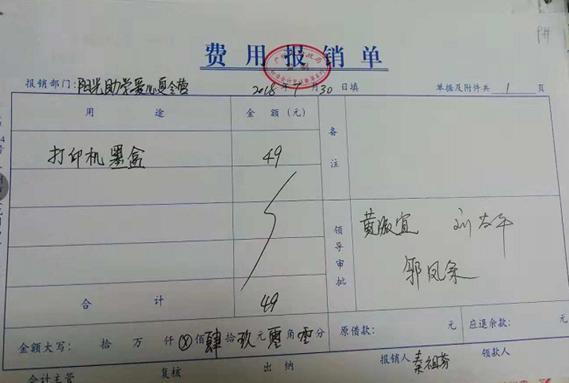 费用报销单
报销部门：阳光助学爱心 2018年 月30日填 单据及附件共 1 页
用途 金额（元） 备注
打印机墨盒 49
领导审批
合计 49
金额大写： 拾 万 仟 ⊗ 佰 肆 拾 玖 元 零 角 零 分 原借款： 元 应退余款： 元
会计主管 复核 出纳 报销人 秦祖芬 领款人